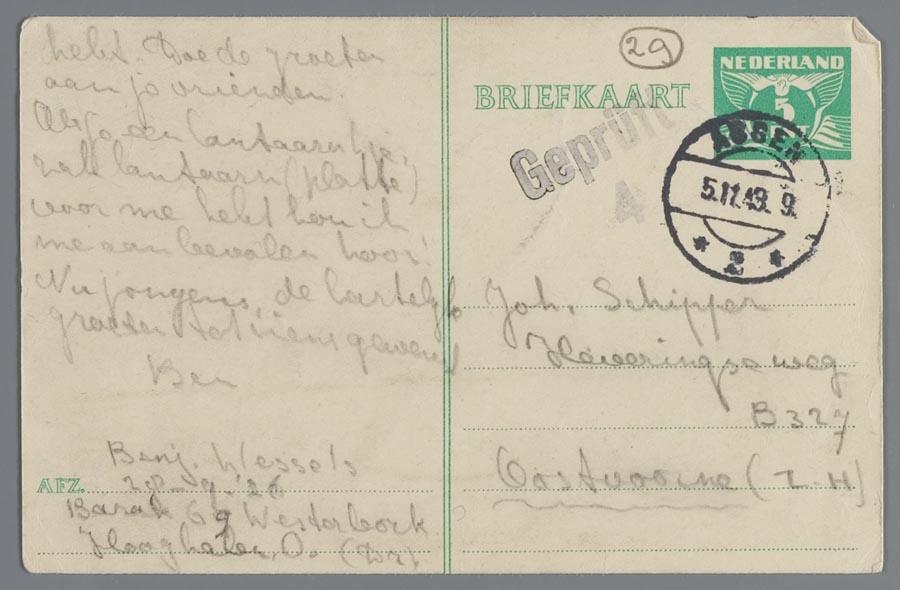 hebt. Doe de groeten
aan je vrienden.
Als je een lantaarntje,
zak lantaarn (platte)
voor me hebt hou ik
me aanbevolen hoor!
Nu jongens, de hartelijke
groeten tot ziens gewenst
Ben
AFZ. Benj. Wessels
28-9-'26
Barak 69 Westerbork
Hooghalen, O. (Dr.)
29
BRIEFKAART
NEDERLAND
5
Geprüft
A
ASSEN
5.11.43. 9.
2
Joh. Schipper
Heveringseweg
B 327
Oostvoorne (Z.H)